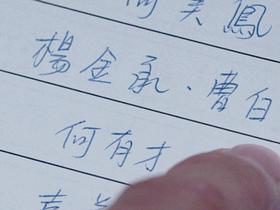 何美鳳
楊金承、曹白
何有才